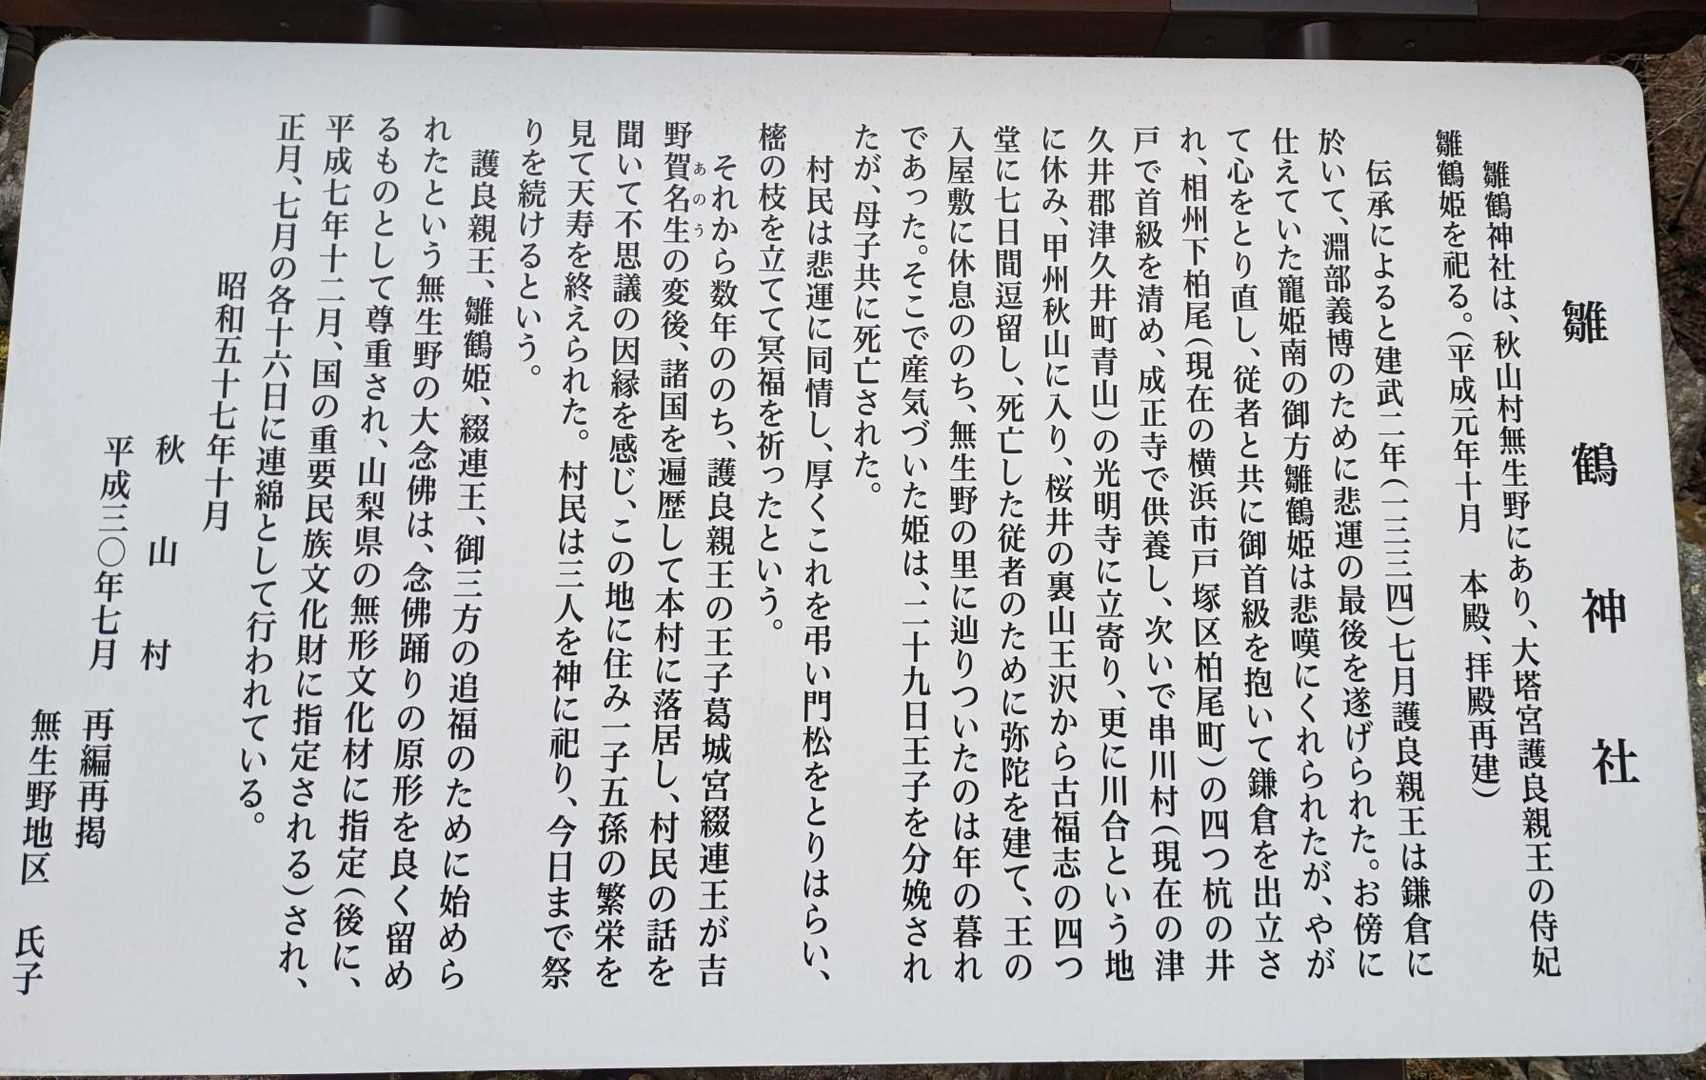 雛鶴神社
雛鶴神社は、秋山村無生野にあり、大塔宮護良親王の侍妃
雛鶴姫を祀る。(平成元年十月　本殿、拝殿再建)
伝承によると建武二年(一三三四)七月護良親王は鎌倉に
於いて、淵部義博のために悲運の最後を遂げられた。お傍に
仕えていた寵姫南の御方雛鶴姫は悲嘆にくれられたが、やが
て心をとり直し、従者と共に御首級を抱いて鎌倉を出立さ
れ、相州下柏尾(現在の横浜市戸塚区柏尾町)の四つ杭の井
戸で首級を清め、成正寺で供養し、次いで串川村(現在の津
久井郡津久井町青山)の光明寺に立寄り、更に川合という地
に休み、甲州秋山に入り、桜井の裏山王沢から古福志の四つ
堂に七日間逗留し、死亡した従者のために弥陀を建て、王の
入屋敷に休息ののち、無生野の里に辿りついたのは年の暮れ
であった。そこで産気づいた姫は、二十九日王子を分娩され
たが、母子共に死亡された。
村民は悲運に同情し、厚くこれを弔い門松をとりはらい、
樒の枝を立てて冥福を祈ったという。
それから数年ののち、護良親王の王子葛城宮綴連王が吉
野賀名生の変後、諸国を遍歴して本村に落居し、村民の話を
あのう
聞いて不思議の因縁を感じ、この地に住み一子五孫の繁栄を
見て天寿を終えられた。村民は三人を神に祀り、今日まで祭
りを続けるという。
護良親王、雛鶴姫、綴連王、御三方の追福のために始めら
れたという無生野の大念佛は、念佛踊りの原形を良く留め
るものとして尊重され、山梨県の無形文化材に指定(後に、
平成七年十二月、国の重要民族文化財に指定される)され、
正月、七月の各十六日に連綿として行われている。
昭和五十七年十月
秋山村
平成三〇年七月　再編再掲
無生野地区　氏子